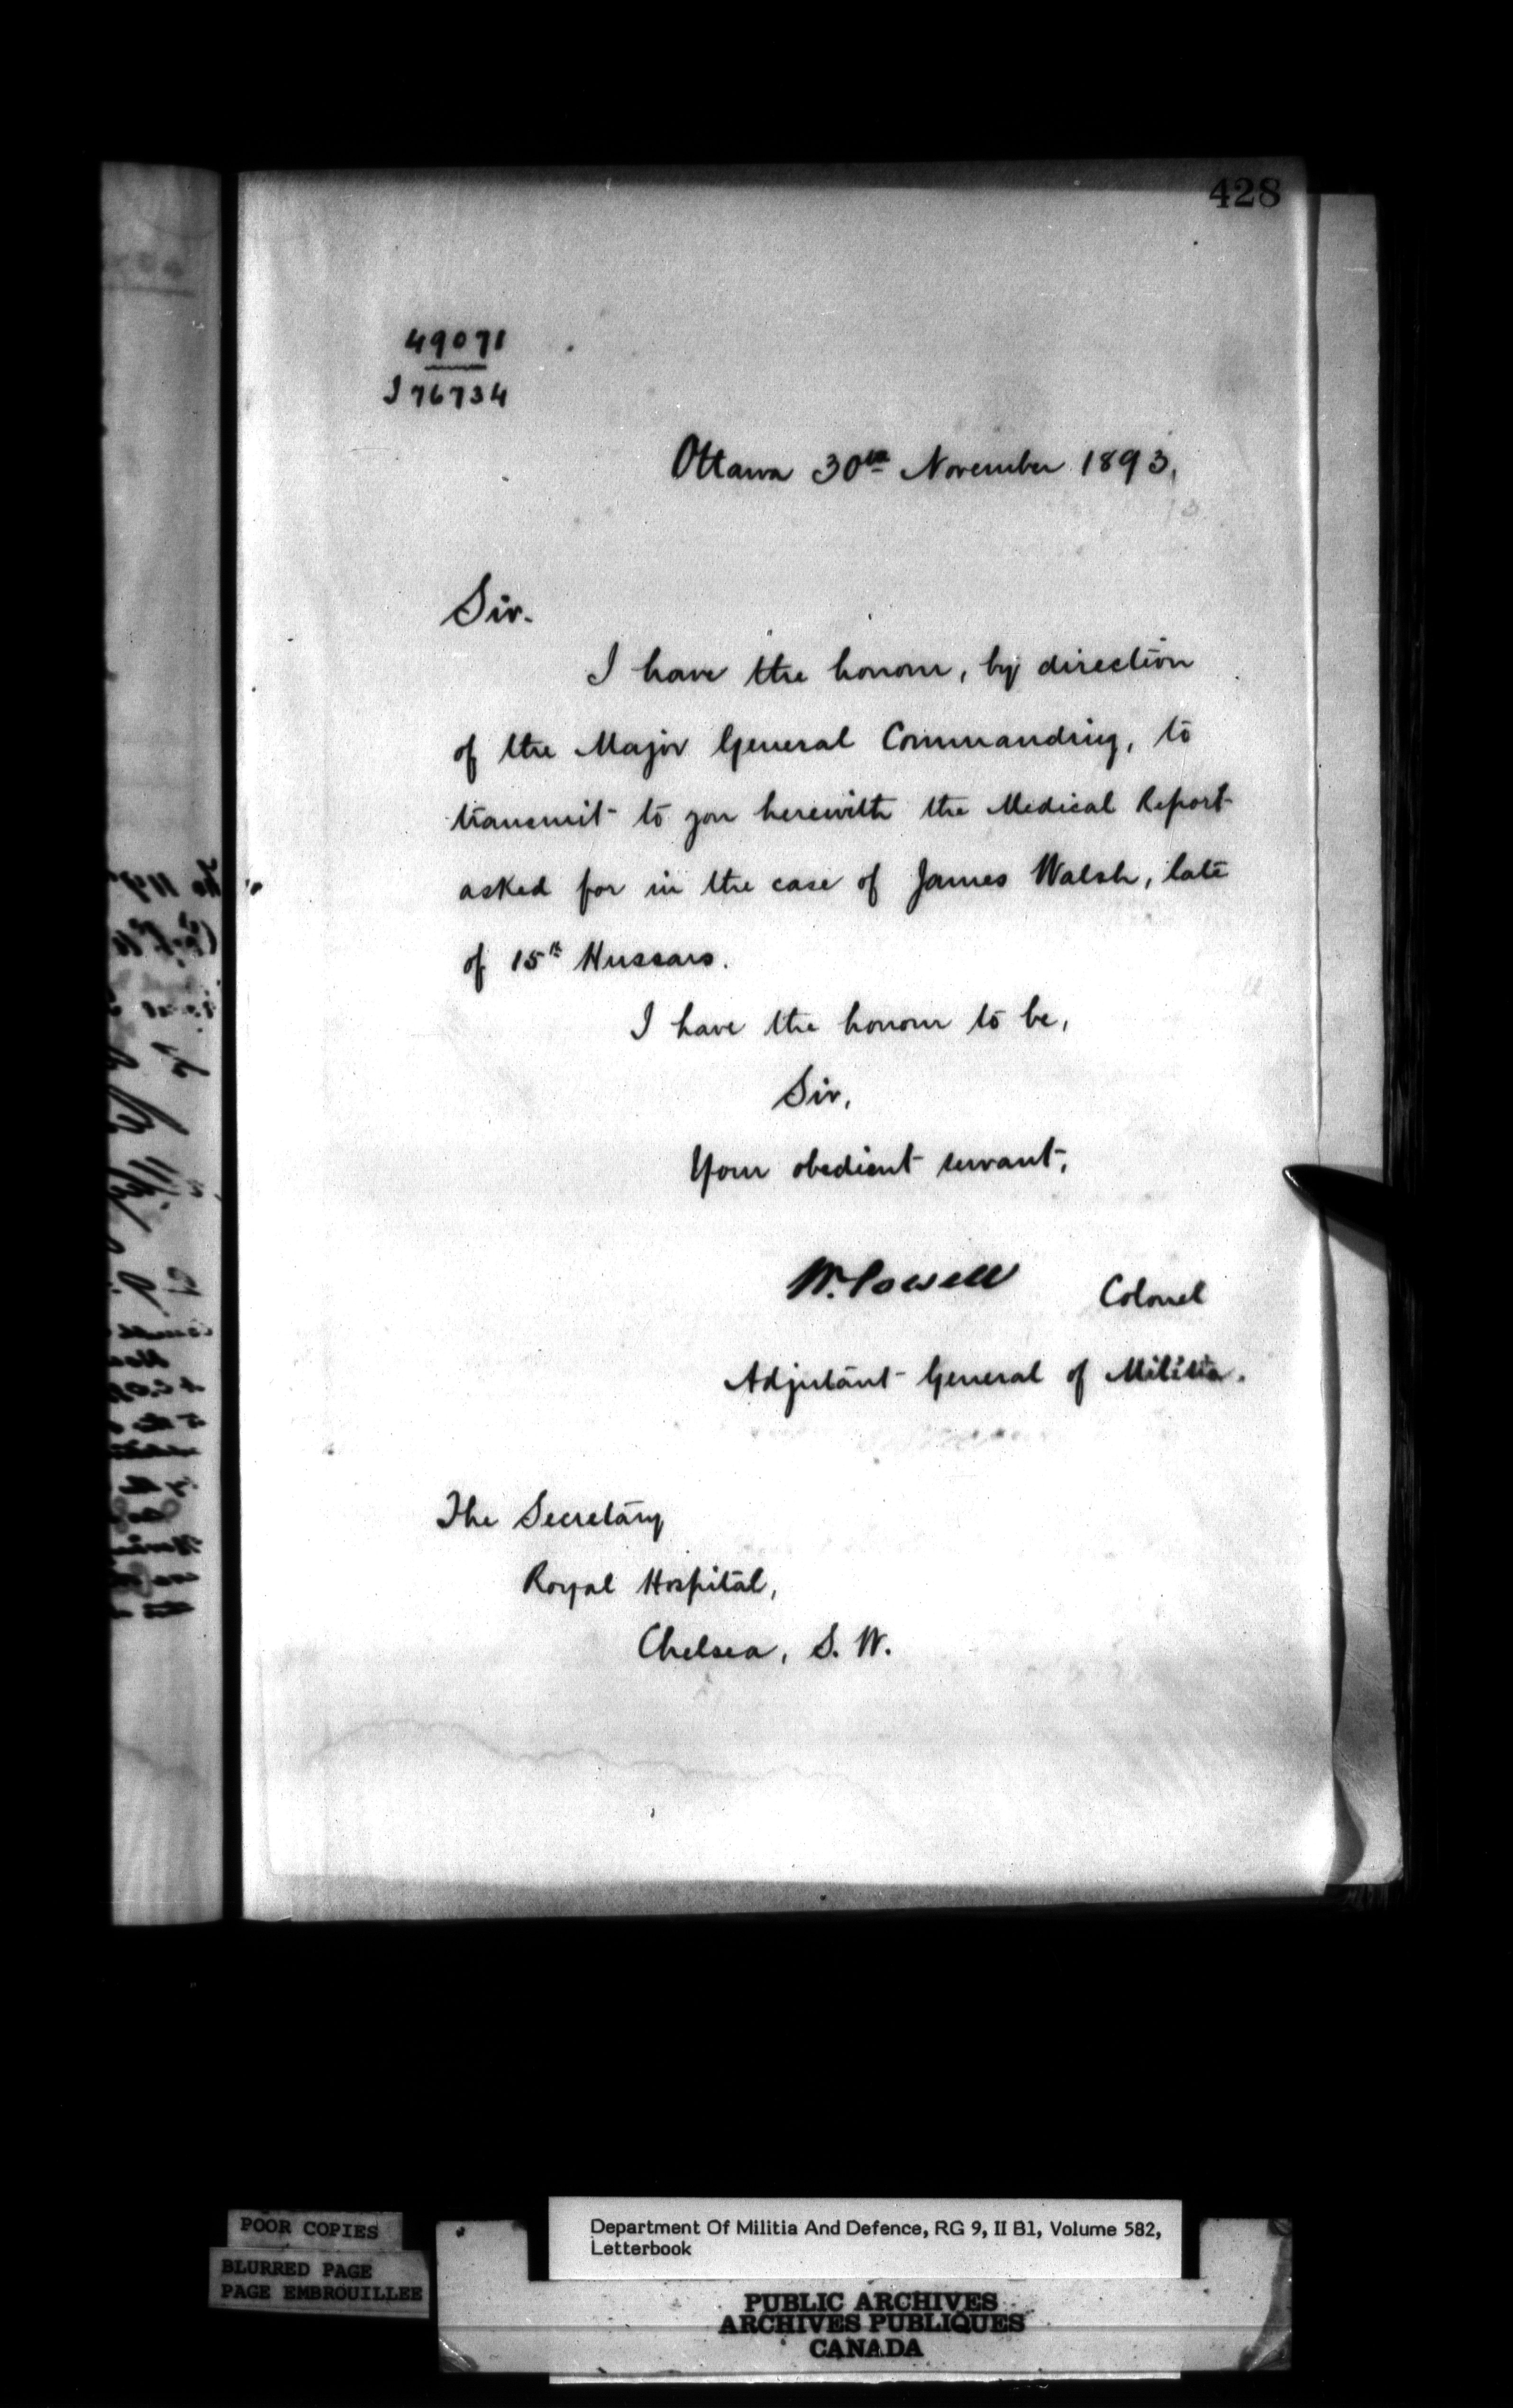 428
49071
J76734
Ottawa 30th November 1893.
Sir.
I have the honour, by direction
of the Major General Commanding, to
transmit to you herewith the Medical Report
asked for in the case of James Walsh, late
of 15th Hussars.
I have the honour to be,
Sir,
Your obedient servant,
W. Powell Colonel
Adjutant General of Militia.
The Secretary
Royal Hospital,
Chelsea, S. W.
POOR COPIES
BLURRED PAGE
PAGE EMBROUILLEE
Department Of Militia And Defence, RG 9, II B1, Volume 582,
Letterbook
PUBLIC ARCHIVES
ARCHIVES PUBLIQUES
CANADA